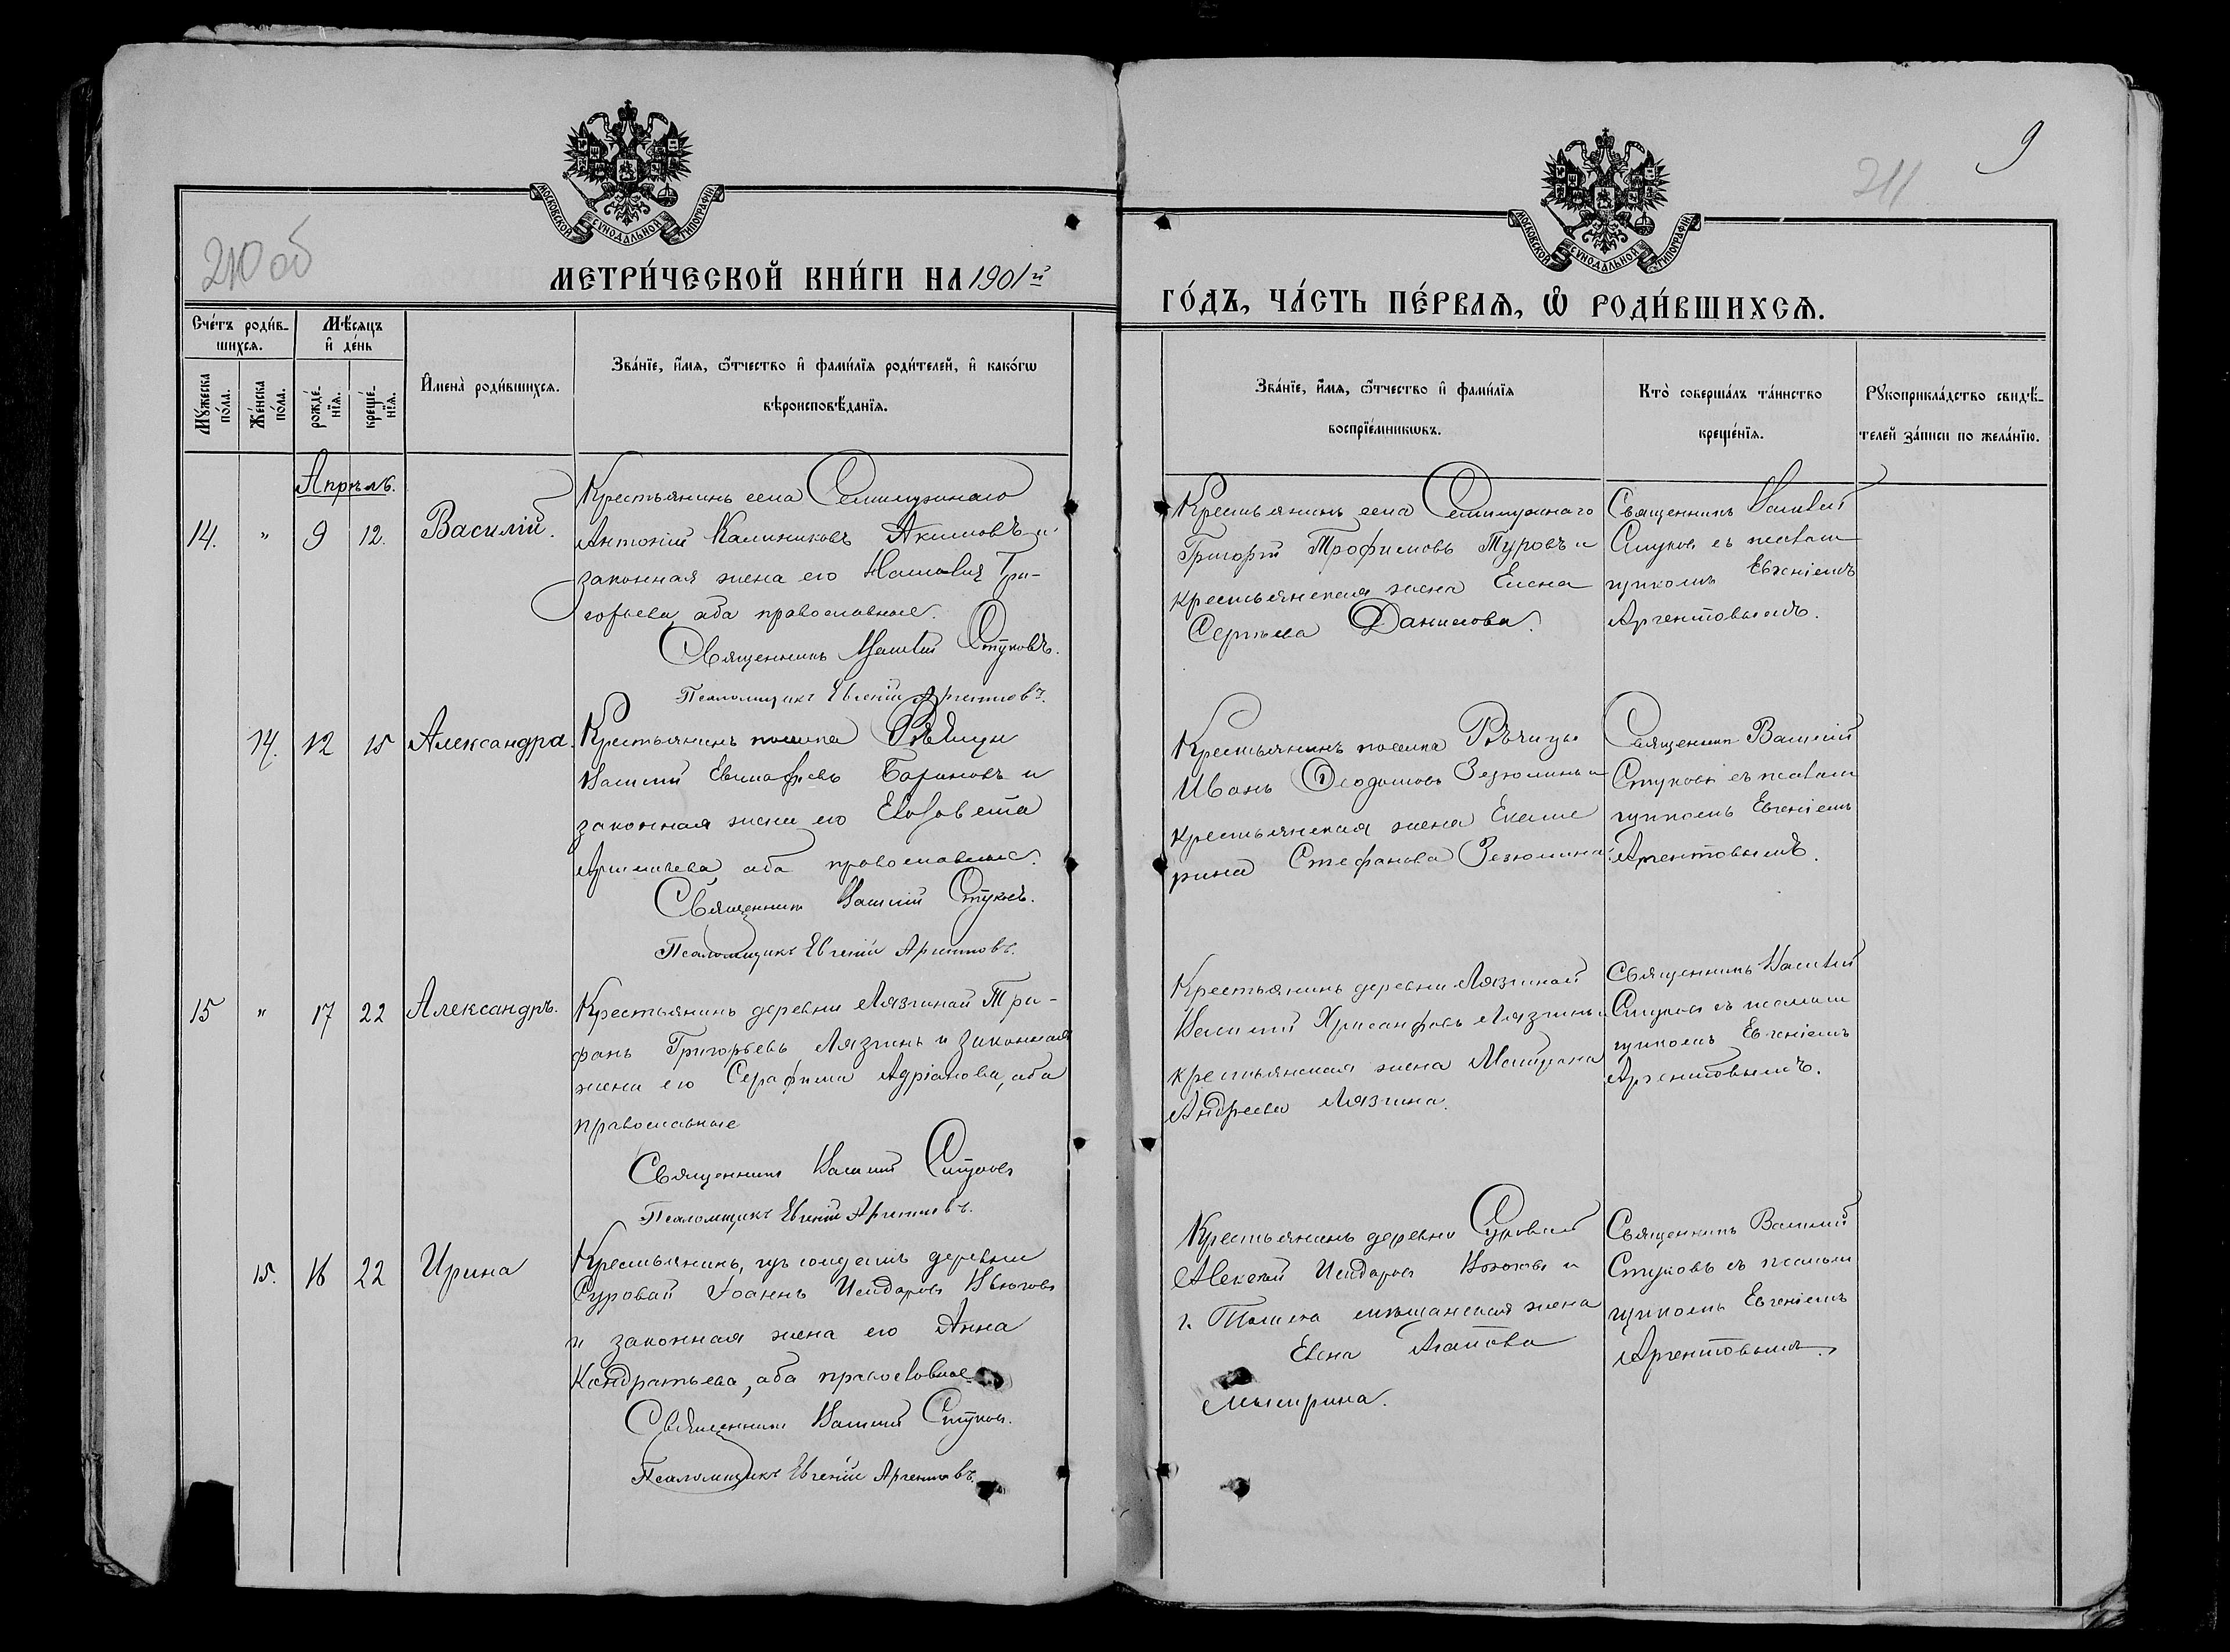 9
211
210 об
МОСКОВСКОЙ СѴНОДАЛЬНОЙ ТИПОГРАФІИ
МОСКОВСКОЙ СѴНОДАЛЬНОЙ ТИПОГРАФІИ
МЕТРИ́ЧЕСКОЙ КНИ́ГИ НА 1901й
ГО́ДЪ, ЧА́СТЬ ПЕ́РВАѦ, Ѡ РОДИ́ВШИХСѦ.
Сче́тъ роди́в-
шихсѧ.
Мѣ́сѧцъ
и҆ де́нь
Мꙋ́жеска
по́ла.
Же́нска
по́ла.
рожде́-
нїѧ.
креще́-
нїѧ.
И҆мена̀ роди́вшихсѧ.
Зва́нїе, и҆́мѧ, ѻ҆́тчество и҆ фами́лїѧ роди́телей, и҆ како́гѡ
вѣроисповѣ́данїѧ.
Зва́нїе, и҆́мѧ, ѻ҆́тчество и҆ фами́лїѧ
воспрїе́мникѡвъ.
Кто̀ соверша́лъ та́инство
креще́нїѧ.
Рꙋкоприкла́дство свидѣ́-
телей за́писи по жела́нїю.
Апрѣль.
14. " 9 12. Василій.
Крестьянинъ села
Антоній Калиниковъ Акимовъ и
законная жена его Гри-
горьева, оба православные.
Священникъ Василій Стуковъ.
Псаломщикъ Евгеній Аргентовъ.
Крестьянинъ села
Григорій Трофимовъ Туровъ и
крестьянская жена Елена
Сергеева Данилова.
Священникъ Василій
Стуковъ съ псалом
щикомъ Евгеніемъ
Аргентовымъ.
14. 12 15 Александра.
Крестьянинъ поселка Рѣчицы
Василій Барановъ и
законная жена его Елизавета
оба православные.
Священникъ Василій Стуковъ.
Псаломщикъ Евгеній Аргентовъ.
Крестьянинъ поселка Рѣчицы
Иванъ Зезюлинъ и
крестьянская жена Екате
рина Стефанова Зезюлина.
Священникъ Василій
Стуковъ съ псалом
щикомъ Евгеніемъ
Аргентовымъ.
15 " 17 22 Александръ.
Крестьянинъ деревни Лязгиной Три-
фонъ Григорьевъ Лязгинъ и законная
жена его Серафима Адріанова, оба
православные
Священникъ Василій Стуковъ
Псаломщикъ Евгеній Аргентовъ.
Крестьянинъ деревни Лязгиной
Василій Хрисанфовъ Лязгинъ и
крестьянская жена Матрона
Андреева Лязгина.
Священникъ Василій
Стуковъ съ псалом
щикомъ Евгеніемъ
Аргентовымъ.
15. 16 22 Ирина
Крестьянинъ, деревни
Суровой Іоаннъ Исидоровъ
и законная жена его Анна
Кондратьева, оба православные.
Священникъ Василій Стуковъ.
Псаломщикъ Евгеній Аргентовъ.
Крестьянинъ деревни Суровой
Алексѣй Исидоровъ и
г. Томска мѣщанская жена
Агапова
Священникъ Василій
Стуковъ съ псалом
щикомъ Евгеніемъ
Аргентовымъ.